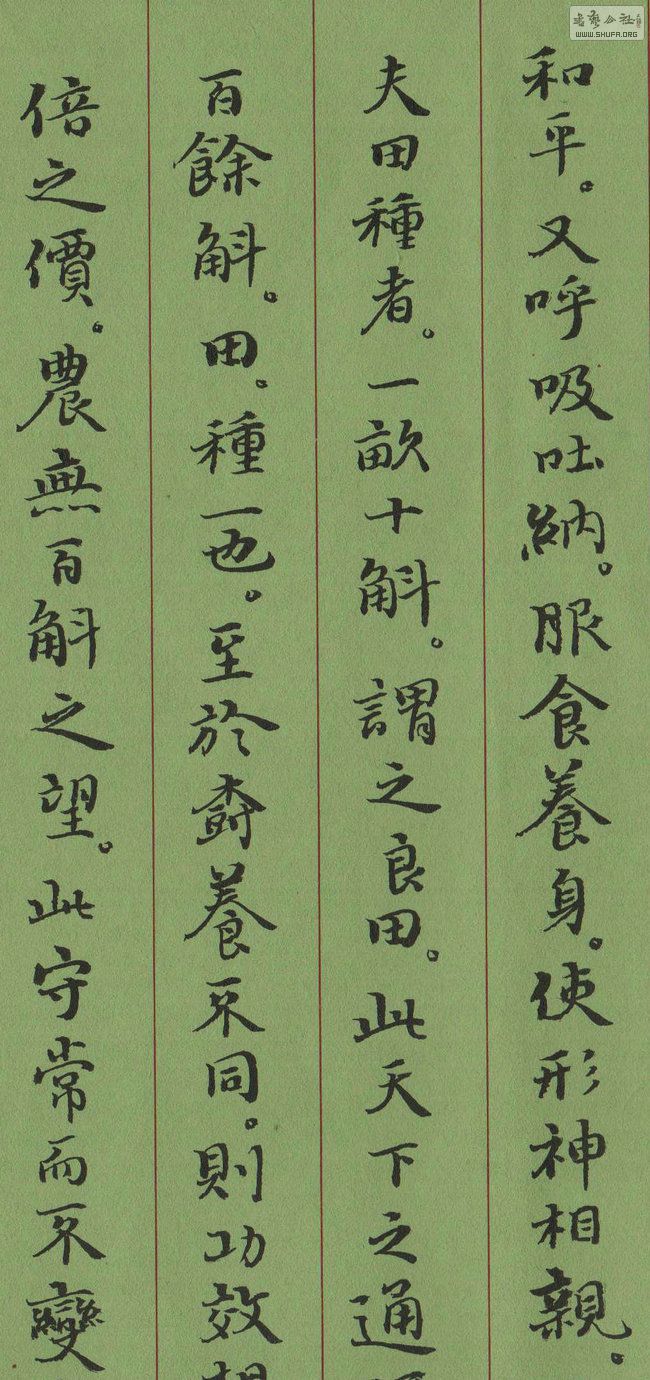 書藝公社
WWW.SHUFA.ORG
和平。又呼吸吐納。服食養身。使形神相親。
夫田種者。一畝十斛。謂之良田。此天下之通
百餘斛。田。種一也。至於樹養不同。則功效
倍之價。農無百斛之望。此守常而不變